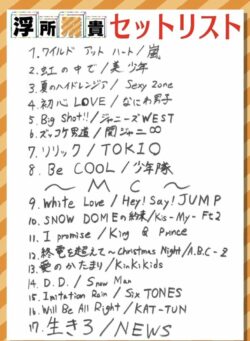 浮所飛貴 セットリスト
1.ワイルド アット ハート/嵐
2.虹の中で/美 少年
3.夏のハイドレンジア/Sexy Zone
4.初心LOVE/なにわ男子
5.Big Shot!!/ジャニーズWEST
6.ズッコケ男道/関ジャニ∞
7.リリック/TOKIO
8.Be COOL/少年隊
～MC～
9.White Love/Hey!Say!JUMP
10.SNOW DOMEの約束/Kis-My-Ft2
11.I promise/King & Prince
12.終電を超えて〜Christmas Night/A.B.C-Z
13.愛のかたまり/KinKi Kids
14.D.D./Snow Man
15.Imitation Rain/SixTONES
16.Will Be All Right/KAT-TUN
17.生きろ/NEWS